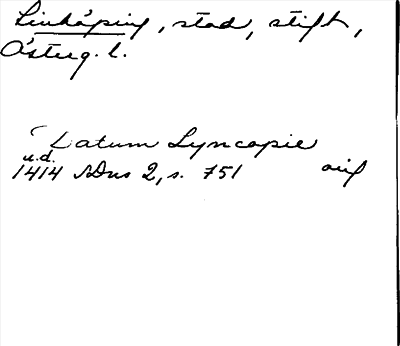 Linköping, stad, stift,
Österg. l.
Datum Lyncopie
u.d.
1414 SDns 2, s. 751 orig